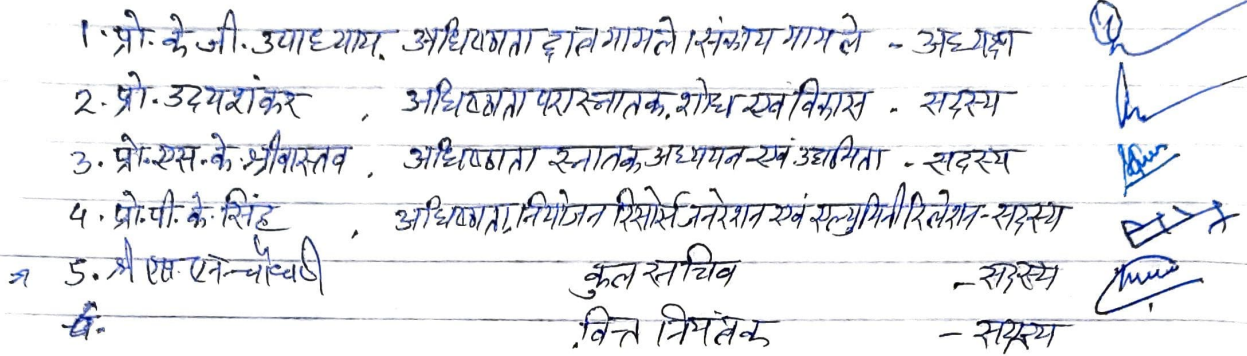 1. प्रो. के. जी. उपाध्याय, अधिष्ठाता छात्र मामले / संकाय मामले - अध्यक्ष
2. प्रो. उदयशंकर , अधिष्ठाता परास्नातक, शोध एवं विकास - सदस्य
3. प्रो. एस. के. श्रीवास्तव , अधिष्ठाता स्नातक, अध्ययन एवं उद्यमिता - सदस्य
4. प्रो. पी. के. सिंह , अधिष्ठाता, नियोजन रिसोर्स जनरेशन एवं एल्युमिनी रिलेशन - सदस्य
5. श्री एस. एन. चौधरी कुल सचिव - सदस्य
6. वित्त नियंत्रक - सदस्य